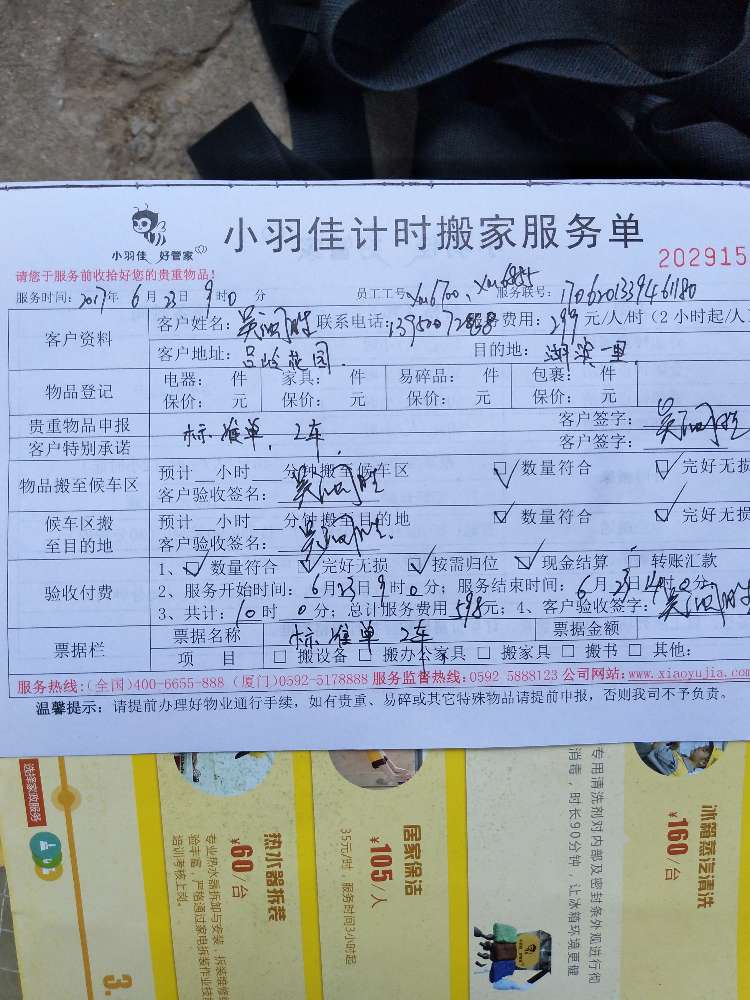 小羽佳计时搬家服务单
小羽佳 好管家
202915
请您于服务前收拾好您的贵重物品!
服务时间: 2017年 6月 23日 9时0分 员工工号 xm6700、 服务联号: 1706201339461180
客户资料
客户姓名: 联系电话: 服务费用: 299元/人/时(2小时起/人
客户地址: 吕岭花园 目的地: 湖滨一里
物品登记
电器: 件 家具: 件 易碎品: 件 包裹: 件
保价: 元 保价: 元 保价: 元 保价: 元
贵重物品申报 客户签字:
客户特别承诺 标准单, 2车, 客户签字:
物品搬至候车区
预计__小时__分钟搬至候车区 数量符合 完好无损
客户验收签名:
候车区搬至目的地
预计__小时__分钟搬至目的地 数量符合 完好无损
客户验收签名:
验收付费
1、 数量符合 完好无损 按需归位 现金结算 转账汇款
2、服务开始时间: 6月23日9时0分; 服务结束时间: 6月23日14时0分
3、共计: 10时 0分; 总计服务费用 598元; 4、客户验收签字:
票据栏
票据名称 标准单 2车 票据金额
项 目 搬设备 搬办公家具 搬家具 搬书 其他:
服务热线:(全国)400-6655-888 (厦门)0592-5178888 服务监督热线:0592 5888123 公司网站:www.xiaoyujia.com
温馨提示: 请提前办理好物业通行手续, 如有贵重、易碎或其它特殊物品请提前申报, 否则我司不予负责。
冰箱蒸汽清洗
¥160/台
专用清洗剂对内部及密封条外观进行彻
消毒,时长90分钟,让冰箱环境更健
居家保洁
¥105/人
35元/时,服务时间3小时起
热水器拆装
¥60/台
专业热水器拆卸与安装,拆装维修
验丰富,严格通过家电拆装作业技
培训考核上岗。
选择家政服务
3.